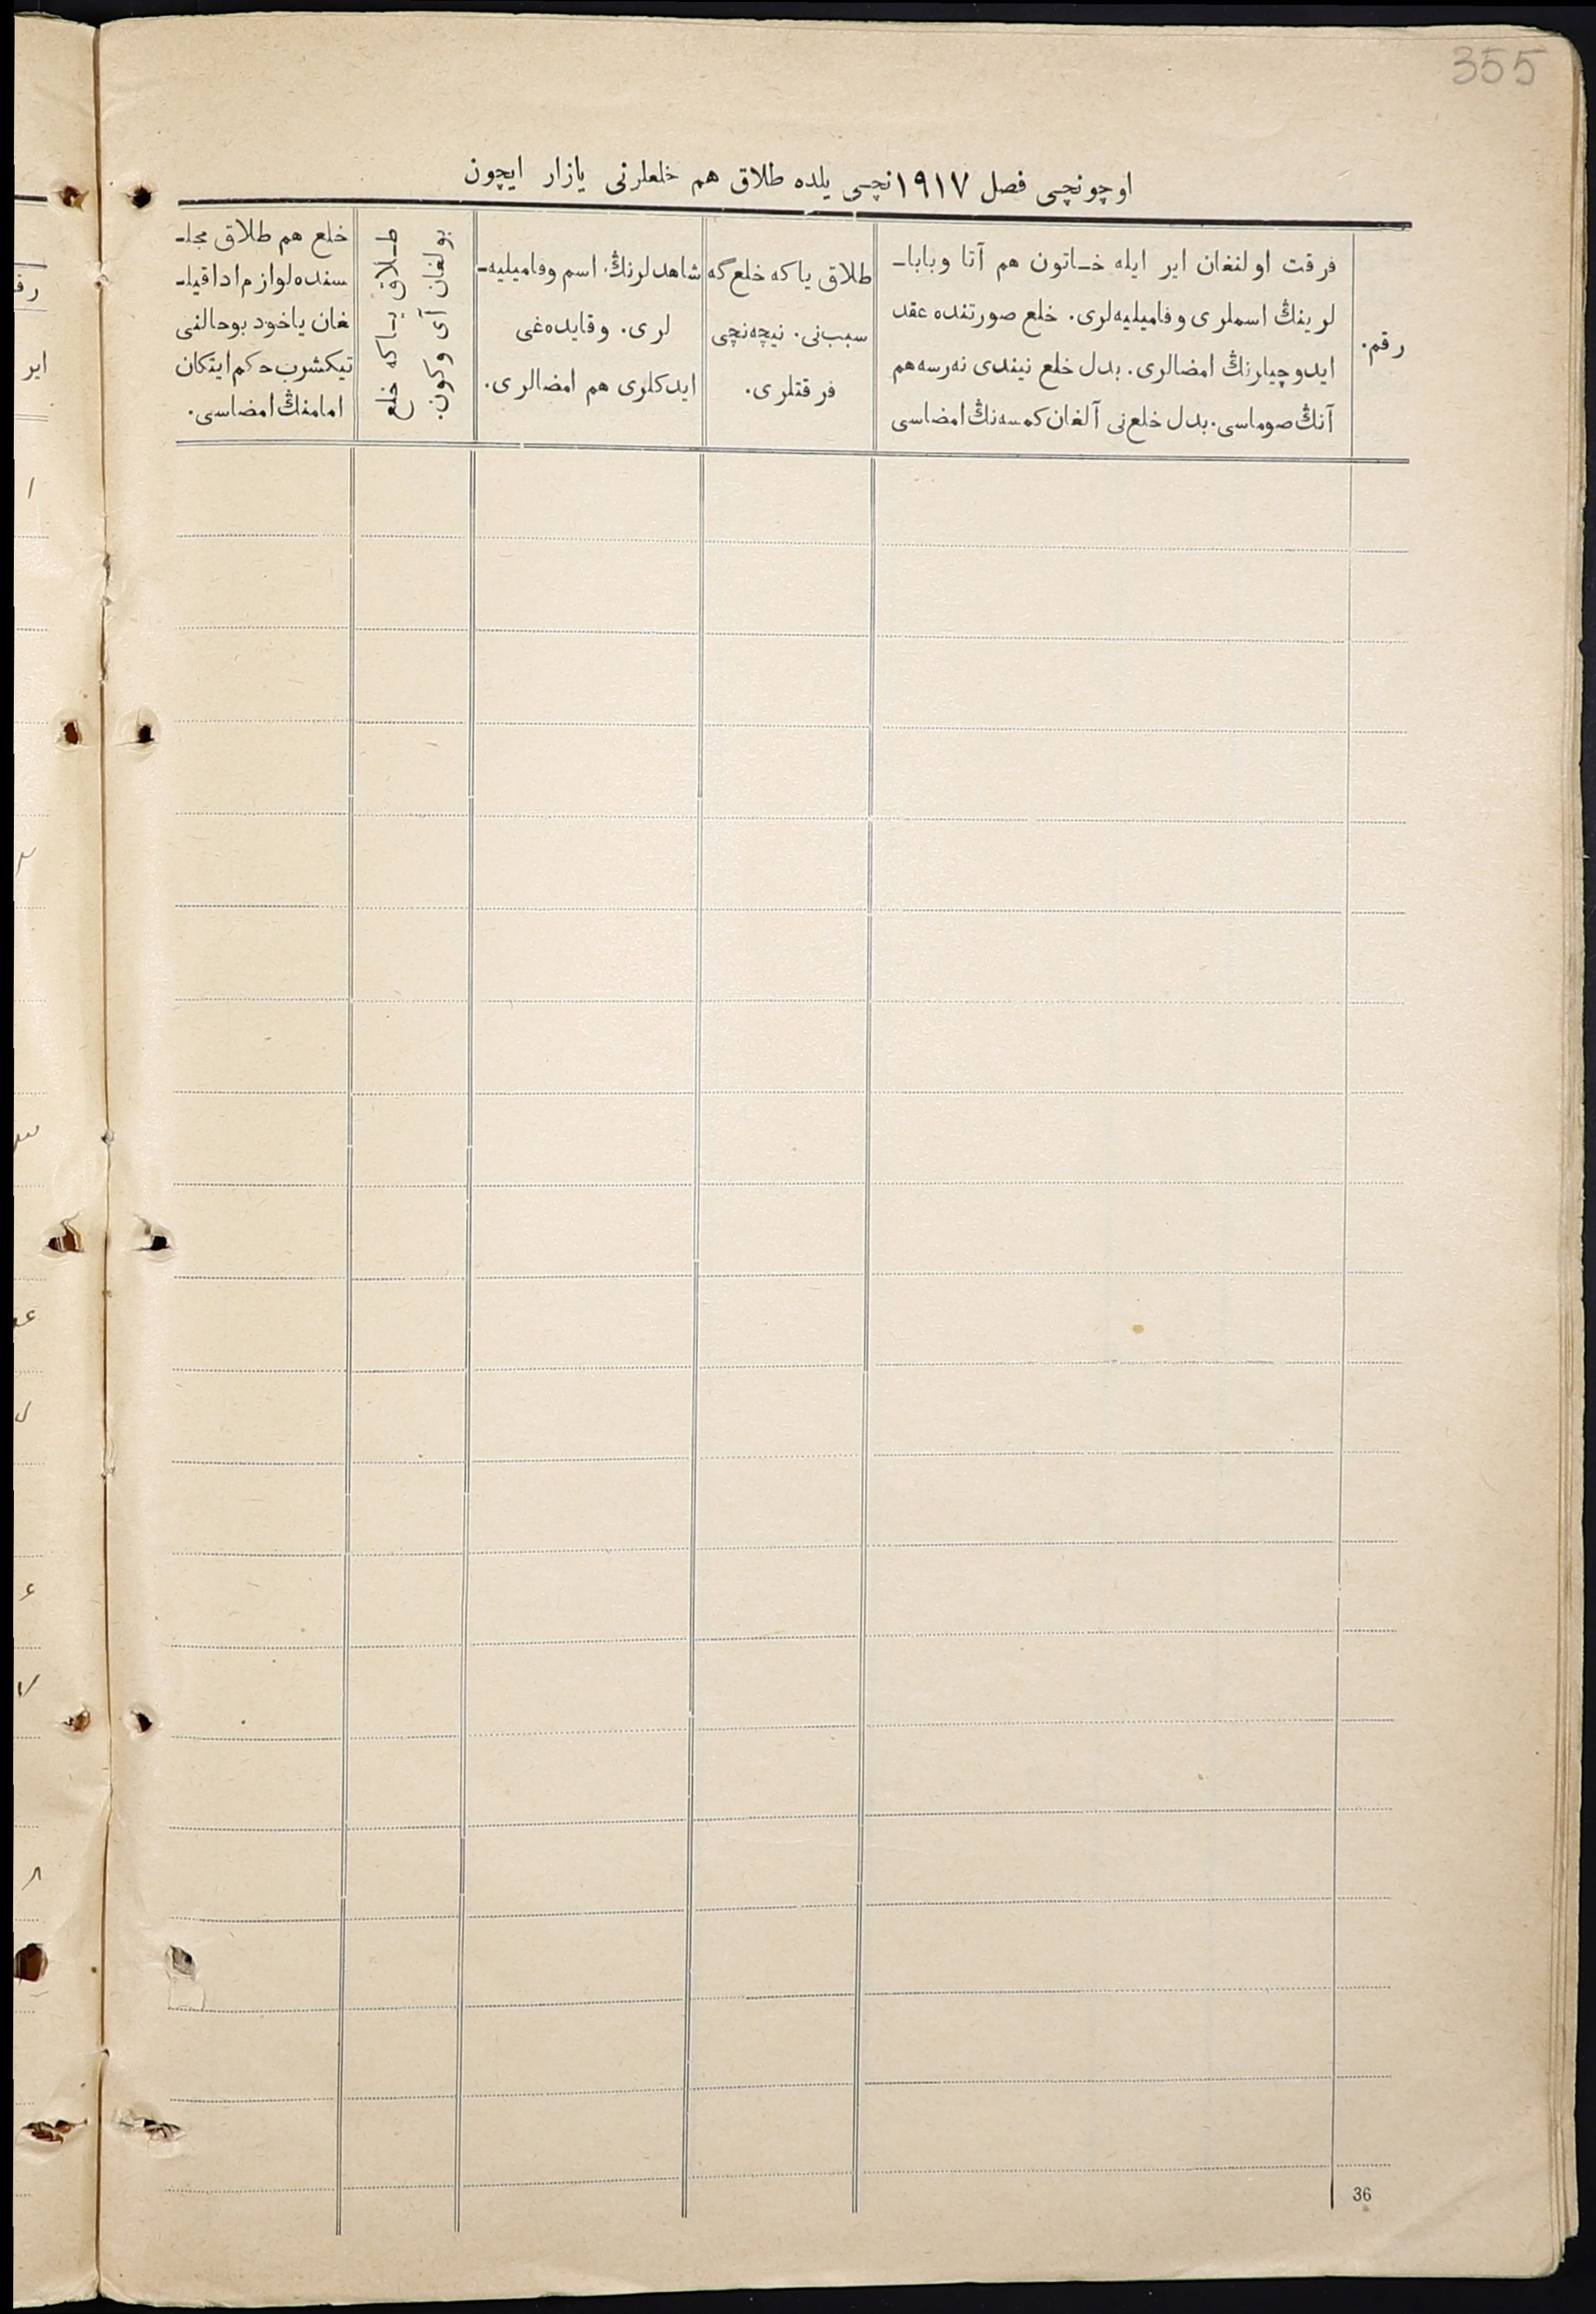 355
اوچونچی فصل ۱۹۱۷نچی یلده طلاق هم خلعلرنی یازار ایچون
رقم.
فرقت اولنغان ایر ایله خـاتون هم آتا وبابا-
لرینڭ اسملری وفامیلیه‌لری. خلع صورتنده عقد
ایدوچیلرنڭ امضالری. بدل خلع نیندی نه‌رسه هم
آنڭ صوماسی. بدل خلع‌نی آلغان کمسه‌نڭ امضاسی
طلاق یا که خلع گه
سبب‌نی. نیچه‌نچی
فرقتلری.
شاهدلرنڭ اسم وفامیلیه-
لری. وقایده‌غی
ایدکلری هم امضالری.
طـلاق یـاکه خلع
بولغان آی وکون.
خلع هم طلاق مجلـ
سنده لوازم ادا قیلـ
غان یاخود بوحالنی
تیکشرب حکم ایتکان
امامنڭ امضاسی.
ایر
36